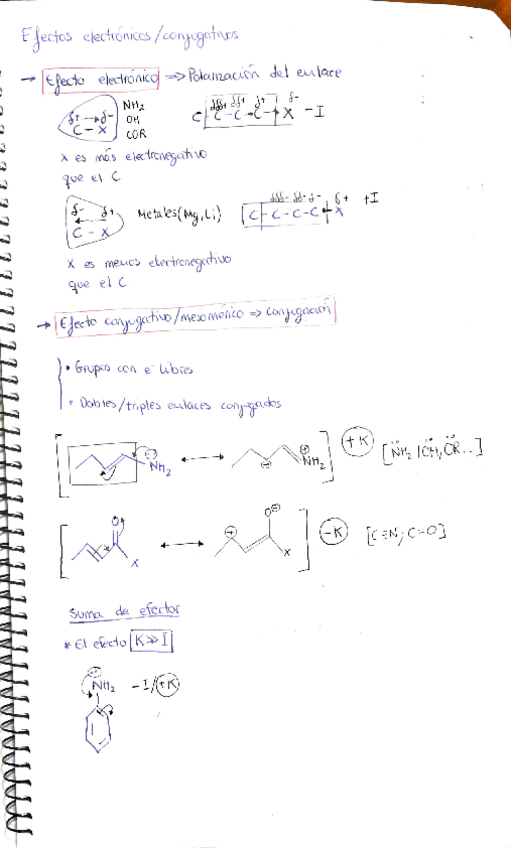 Efectos electrónicos/conjugativos
→ Efecto electrónico ⇒ Polarización del enlace
δ+ → δ- NH₂ δδδ+ δδ+ δ+ δ-
C – X OH C – C – C → C → X -I
COR
X es más electronegativo
que el C
δ- δ+ Metales (Mg, Li) δδδ- δδ- δ- δ+ +I
C – X C – C – C – C ← X
X es menos electronegativo
que el C
→ Efecto conjugativo/mesomérico ⇒ Conjugación
• Grupos con e⁻ libres
• Dobles/triples enlaces conjugados
[ NH₂ ↔ ⊖ ⊕ NH₂ ] +K [NH₂, OH, OR...]
[ O X ↔ ⊕ O⊖ X ] -K [C≡N, C=O]
Suma de efectos
* El efecto K≫I
NH₂ -I/+K